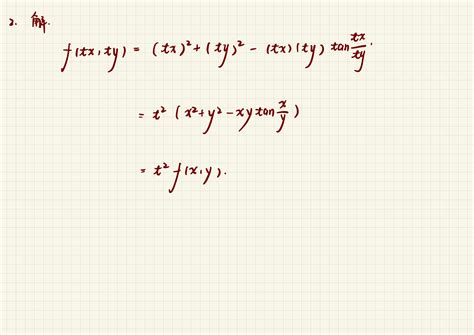 2. 解.
f(tx, ty) = (tx)² + (ty)² - (tx)(ty) tan tx/ty.
= t² (x² + y² - xy tan x/y)
= t² f(x, y).